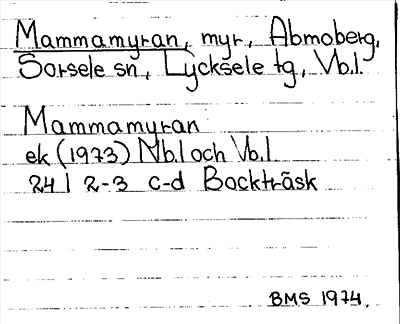 Mammamyran, myr, Abmoberg,
Sorsele sn, Lycksele tg, Vb.l.
Mammamyran
ek (1973) Nb.l och Vb.l
24 I 2-3 c-d Bockträsk
BMS 1974.